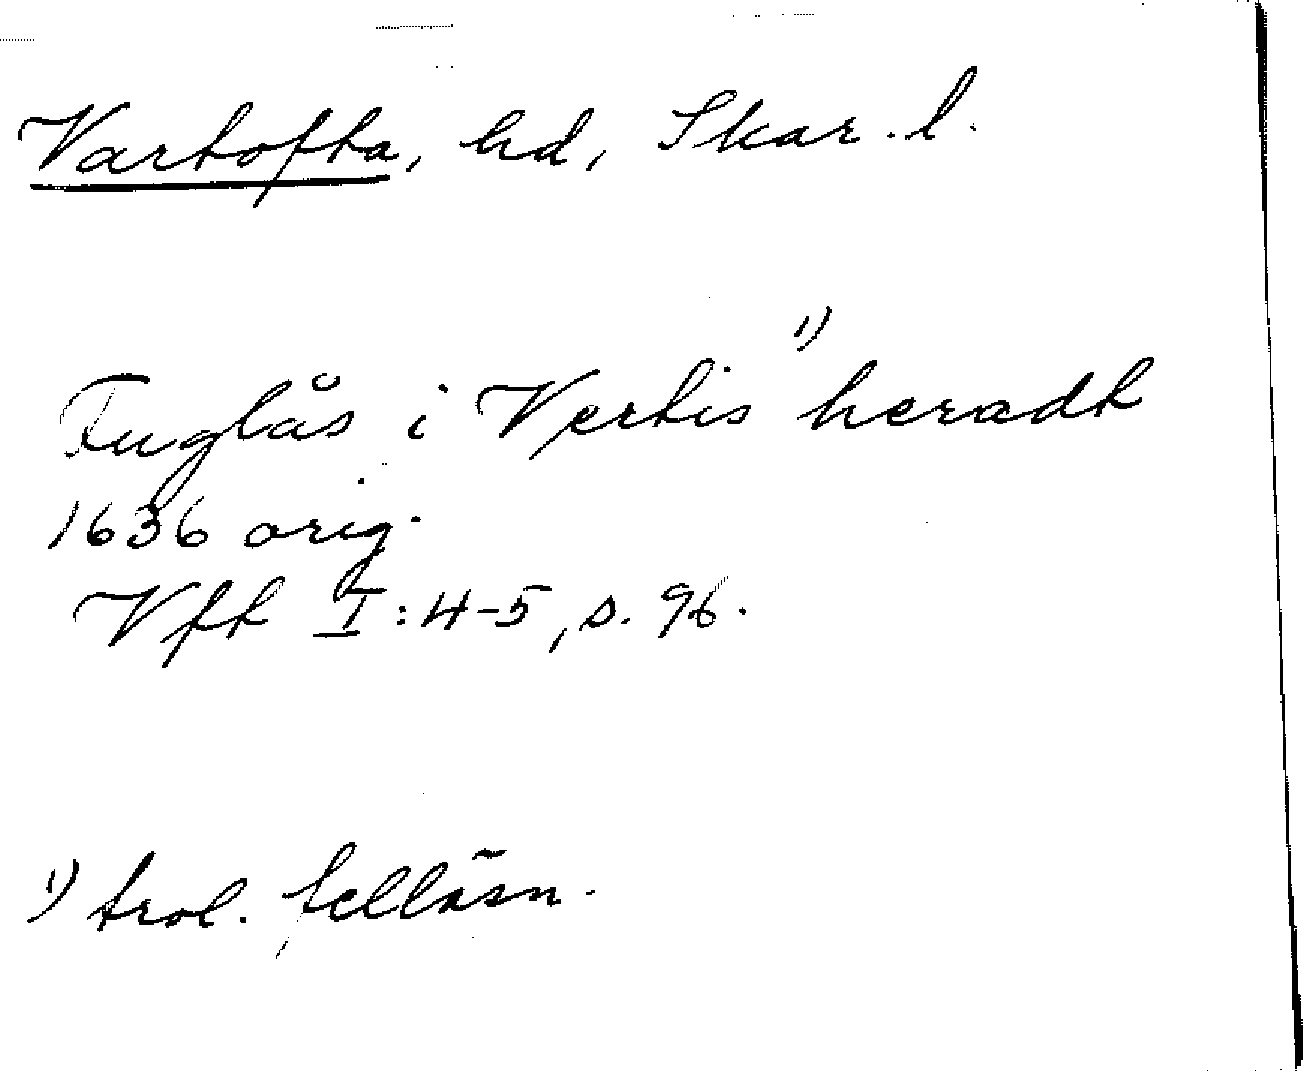 Vartofta, hd, Skar. l.
Fuglås i Vertis ¹⁾ heradt
1636 orig.
Vft I:4-5, s. 96.
¹⁾ trol. felläsn.